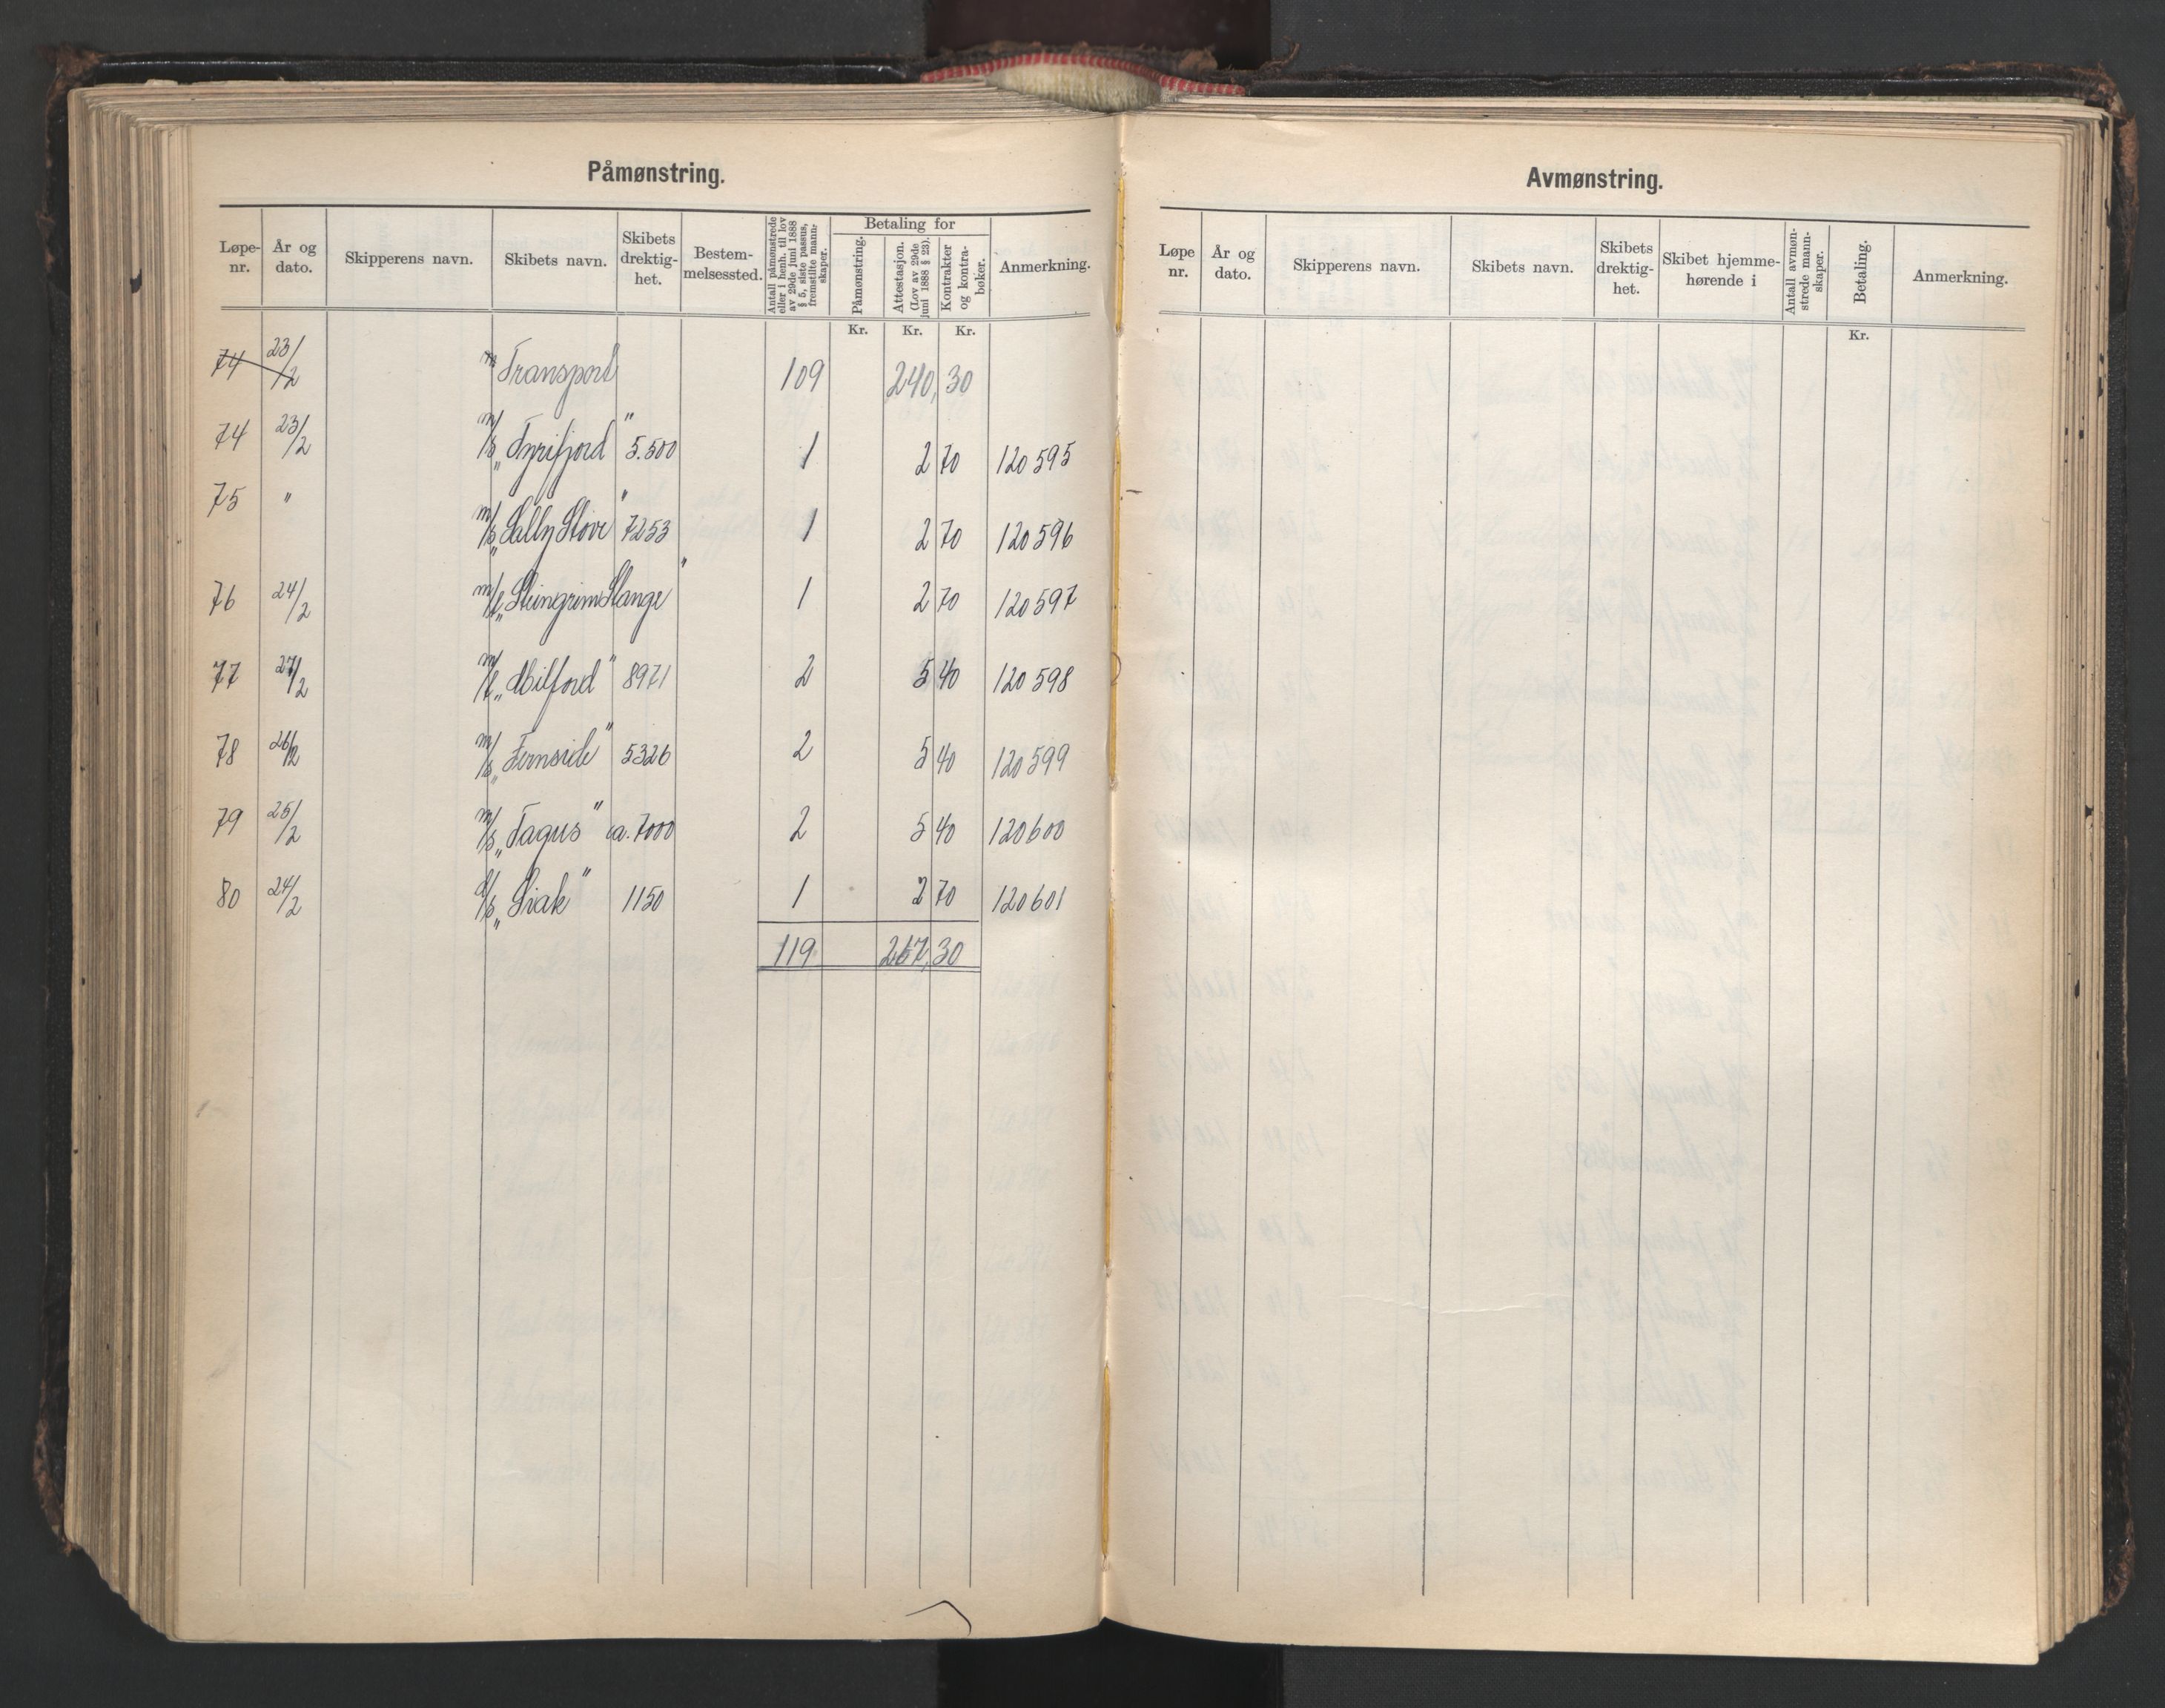 Påmønstring.
Løpe-nr. År og dato. Skipperens navn. Skibets navn. Skibets drektig-het. Bestem-melsessted. Antall påmønstrede eller i henh. til lov av 29de juni 1888 § 5, siste passus, fremstilte mann-skaper. Betaling for Påmønstring. Attestasjon. (Lov av 29de juni 1888 § 23). Kontrakter og kontra-bøker. Anmerkning.
Kr. Kr. Kr.
74 23/2 Transport 109 240,30
74 23/2 m/s „Tyrifjord" 5.500 1 2 70 120595
75 " m/s „Sally Stove" 7253 1 2 70 120596
76 24/2 m/t „Steingrim Slange" 1 2 70 120597
77 27/2 m/t „Milford" 8971 2 5 40 120598
78 26/2 m/s „Fernside" 5326 2 5 40 120599
79 25/2 m/s „Tagus" ca. 7000 2 5 40 120600
80 24/2 d/s „Siak" 1150 1 2 70 120601
119 267,30
Avmønstring.
Løpe nr. År og dato. Skipperens navn. Skibets navn. Skibets drektig-het. Skibet hjemme-hørende i Antall avmøn-strede mann-skaper. Betaling. Anmerkning.
Kr.